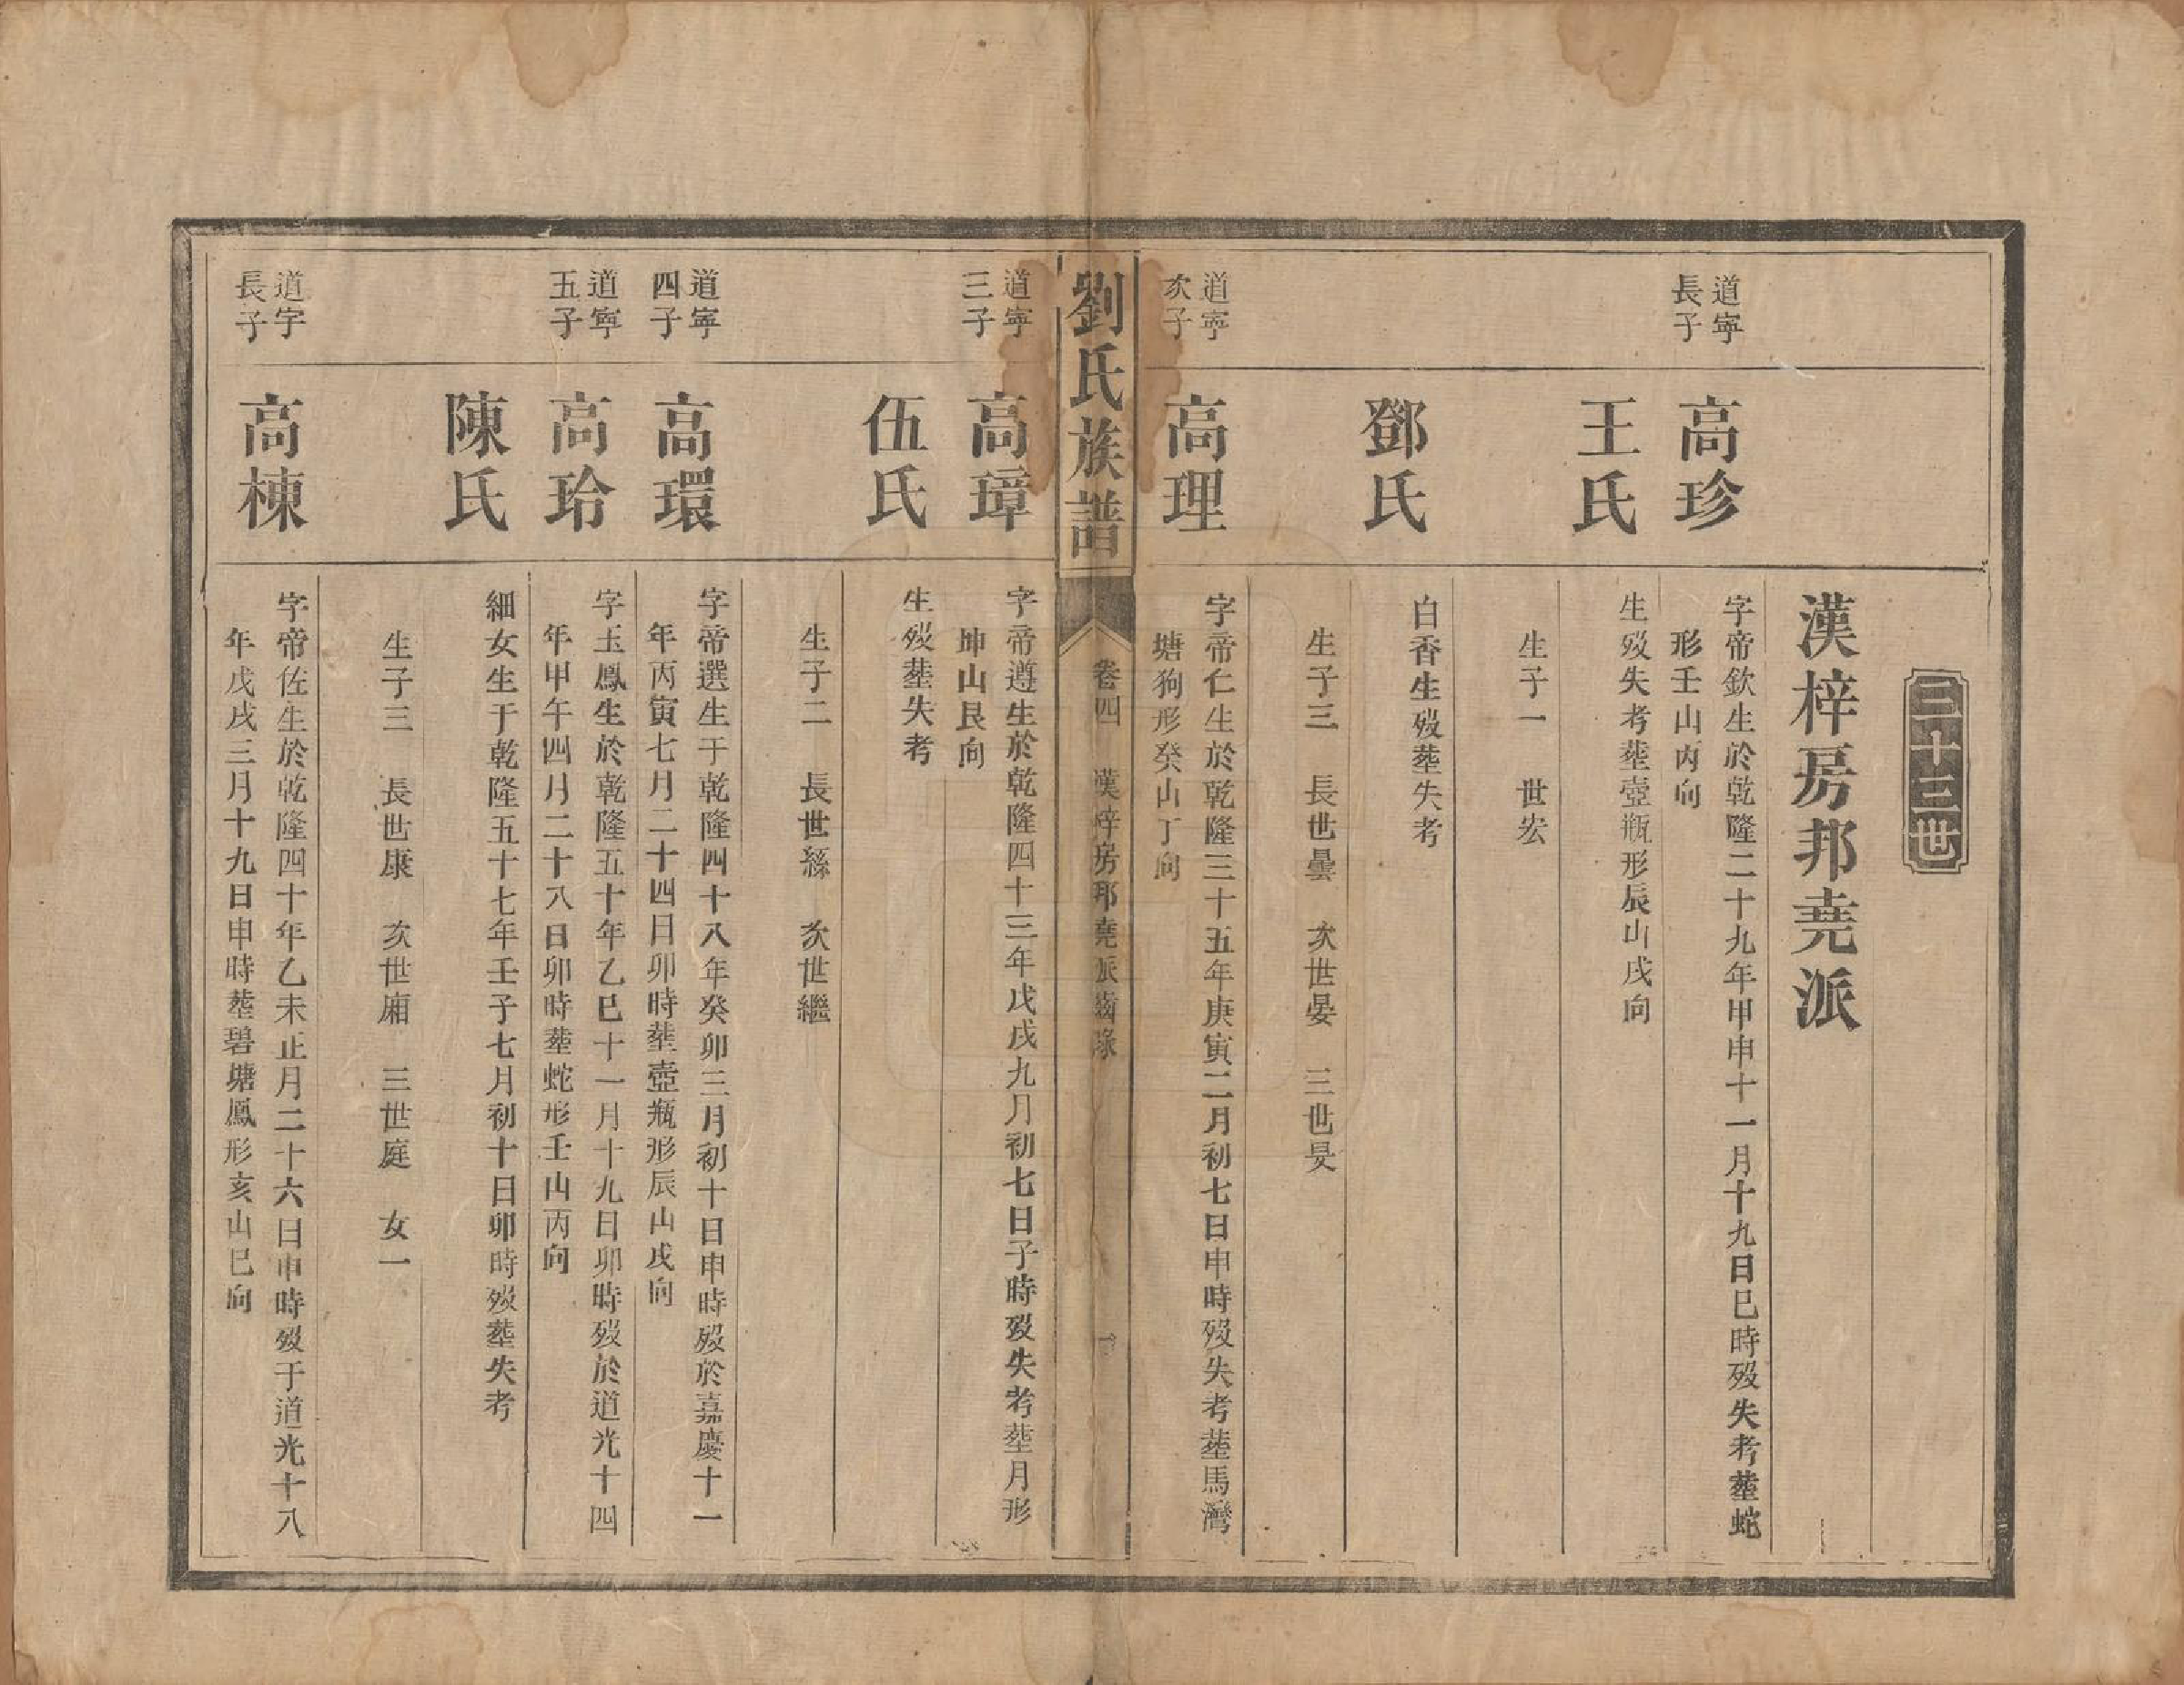 三十三世
漢梓房邦堯派
道寧
長子
高珍
字帝欽生於乾隆二十九年甲申十一月十九日巳時歿失考塟蛇
形壬山丙向
王氏
生歿失考塟壺瓶形辰山戌向
生子一　世宏
鄧氏
白香生歿塟失考
生子三　長世曇　次世晏　三世旻
道寧
次子
高理
字帝仁生於乾隆三十五年庚寅二月初七日申時歿失考塟馬灣
塘狗形癸山丁向
劉氏族譜
卷四　漢梓房邦堯派齒錄
道寧
三子
高璋
字帝遵生於乾隆四十三年戊戌九月初七日子時歿失考塟月形
坤山艮向
伍氏
生歿塟失考
生子二　長世縣　次世繼
道寧
四子
高環
字帝選生于乾隆四十八年癸卯三月初十日申時歿於嘉慶十一
年丙寅七月二十四日卯時塟壺瓶形辰山戌向
道寧
五子
高玲
字玉鳳生於乾隆五十年乙巳十一月十九日卯時歿於道光十四
年甲午四月二十八日卯時塟蛇形壬山丙向
陳氏
細女生于乾隆五十七年壬子七月初十日卯時歿塟失考
生子三　長世康　次世廂　三世庭　女一
道宇
長子
高棟
字帝佐生於乾隆四十年乙未正月二十六日申時歿于道光十八
年戊戌三月十九日申時塟碧塘鳳形亥山巳向